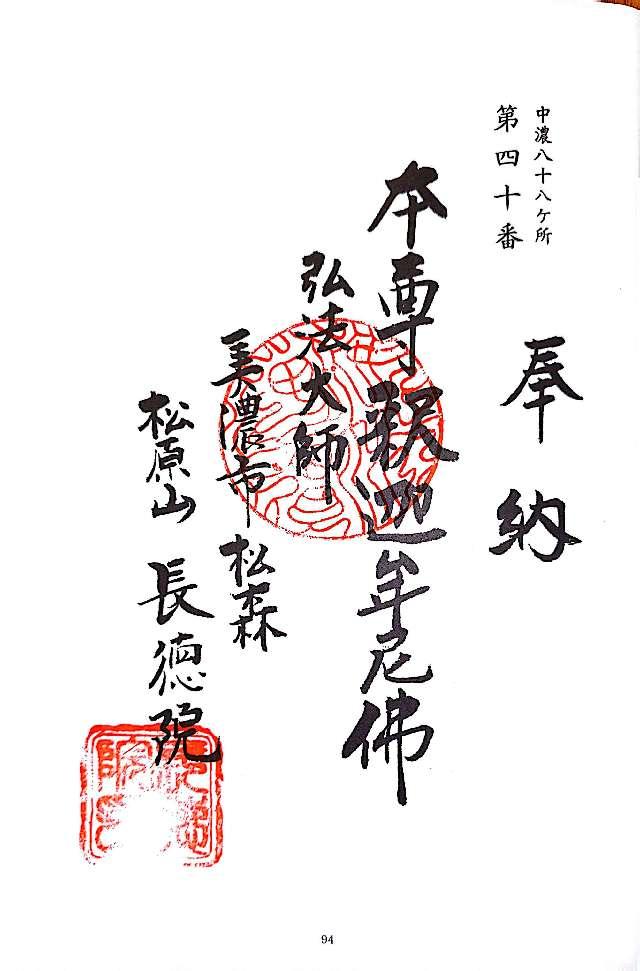 中濃八十八ケ所
第四十番
奉納
本尊釈迦牟尼佛
弘法大師
美濃市松森
松原山長德院
94